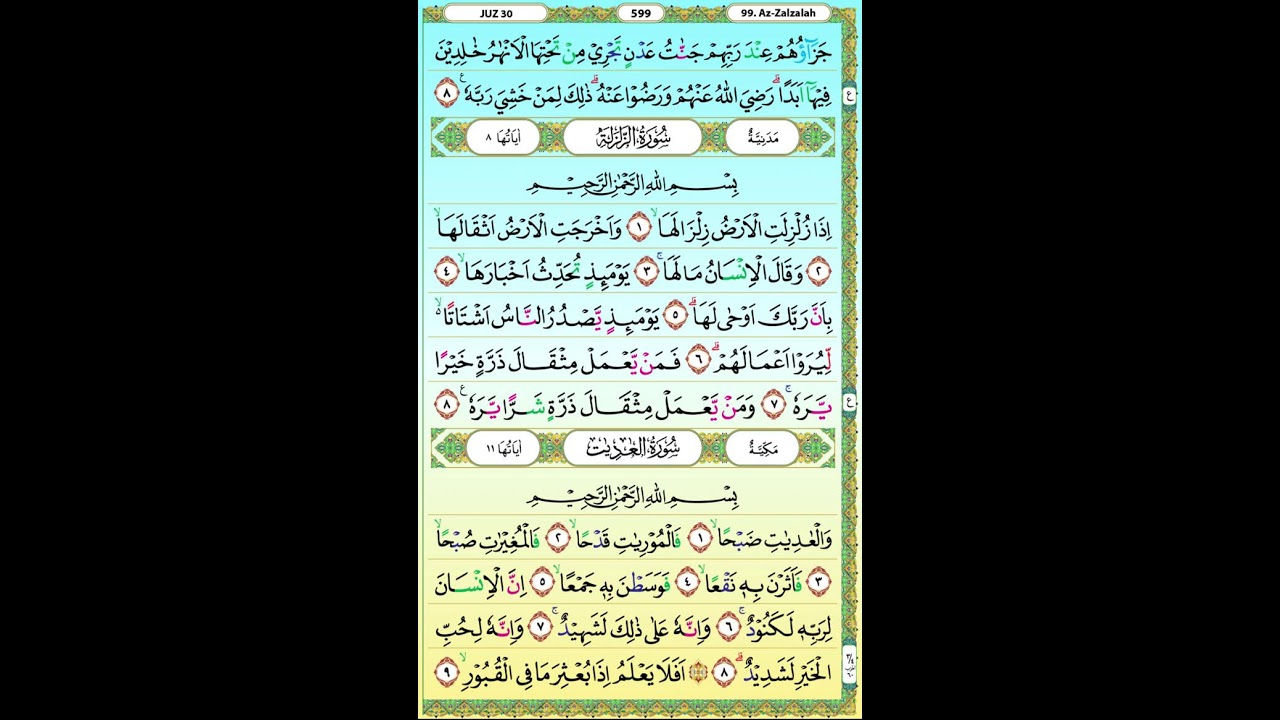 JUZ 30
599
99. Az-Zalzalah
جَزَاۤؤُهُمْ عِنْدَ رَبِّهِمْ جَنّٰتُ عَدْنٍ تَجْرِيْ مِنْ تَحْتِهَا الْاَنْهٰرُ خٰلِدِيْنَ
فِيْهَآ اَبَدًا ۗ رَضِيَ اللّٰهُ عَنْهُمْ وَرَضُوْا عَنْهُ ۗ ذٰلِكَ لِمَنْ خَشِيَ رَبَّهٗ ࣖ ٨
ع
مَدَنِيَّةٌ سُوْرَةُ الزَّلْزَلَةِ اٰيَاتُهَا ٨
بِسْمِ اللّٰهِ الرَّحْمٰنِ الرَّحِيْمِ
اِذَا زُلْزِلَتِ الْاَرْضُ زِلْزَالَهَا ۙ ١ وَاَخْرَجَتِ الْاَرْضُ اَثْقَالَهَا ۙ
٢ وَقَالَ الْاِنْسَانُ مَا لَهَا ۚ ٣ يَوْمَىِٕذٍ تُحَدِّثُ اَخْبَارَهَا ۙ ٤
بِاَنَّ رَبَّكَ اَوْحٰى لَهَا ۗ ٥ يَوْمَىِٕذٍ يَّصْدُرُ النَّاسُ اَشْتَاتًا ەۙ
لِّيُرَوْا اَعْمَالَهُمْ ۗ ٦ فَمَنْ يَّعْمَلْ مِثْقَالَ ذَرَّةٍ خَيْرًا
يَّرَهٗ ۚ ٧ وَمَنْ يَّعْمَلْ مِثْقَالَ ذَرَّةٍ شَرًّا يَّرَهٗ ࣖ ٨
ع
مَكِّيَّةٌ سُوْرَةُ الْعٰدِيٰتِ اٰيَاتُهَا ١١
بِسْمِ اللّٰهِ الرَّحْمٰنِ الرَّحِيْمِ
وَالْعٰدِيٰتِ ضَبْحًا ۙ ١ فَالْمُوْرِيٰتِ قَدْحًا ۙ ٢ فَالْمُغِيْرٰتِ صُبْحًا ۙ
٣ فَاَثَرْنَ بِهٖ نَقْعًا ۙ ٤ فَوَسَطْنَ بِهٖ جَمْعًا ۙ ٥ اِنَّ الْاِنْسَانَ
لِرَبِّهٖ لَكَنُوْدٌ ۚ ٦ وَاِنَّهٗ عَلٰى ذٰلِكَ لَشَهِيْدٌ ۚ ٧ وَاِنَّهٗ لِحُبِّ
الْخَيْرِ لَشَدِيْدٌ ۗ ٨ ۞ اَفَلَا يَعْلَمُ اِذَا بُعْثِرَ مَا فِى الْقُبُوْرِ ۙ ٩